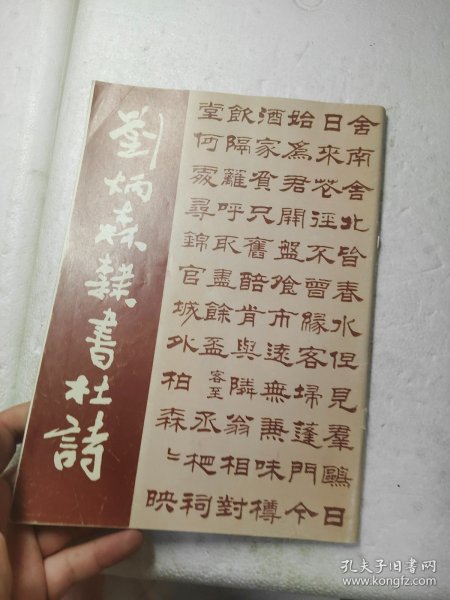 劉炳森隸書杜詩
舍南舍北皆春水但見羣鷗日
日來花徑不曾緣客掃蓬門今
始爲君開盤飧市遠無兼味樽
酒家貧只舊醅肯與隣翁相對
飲隔籬呼取盡餘盃客至丞相祠
堂何處尋錦官城外柏森〻映
孔夫子旧书网
www.kongfz.com